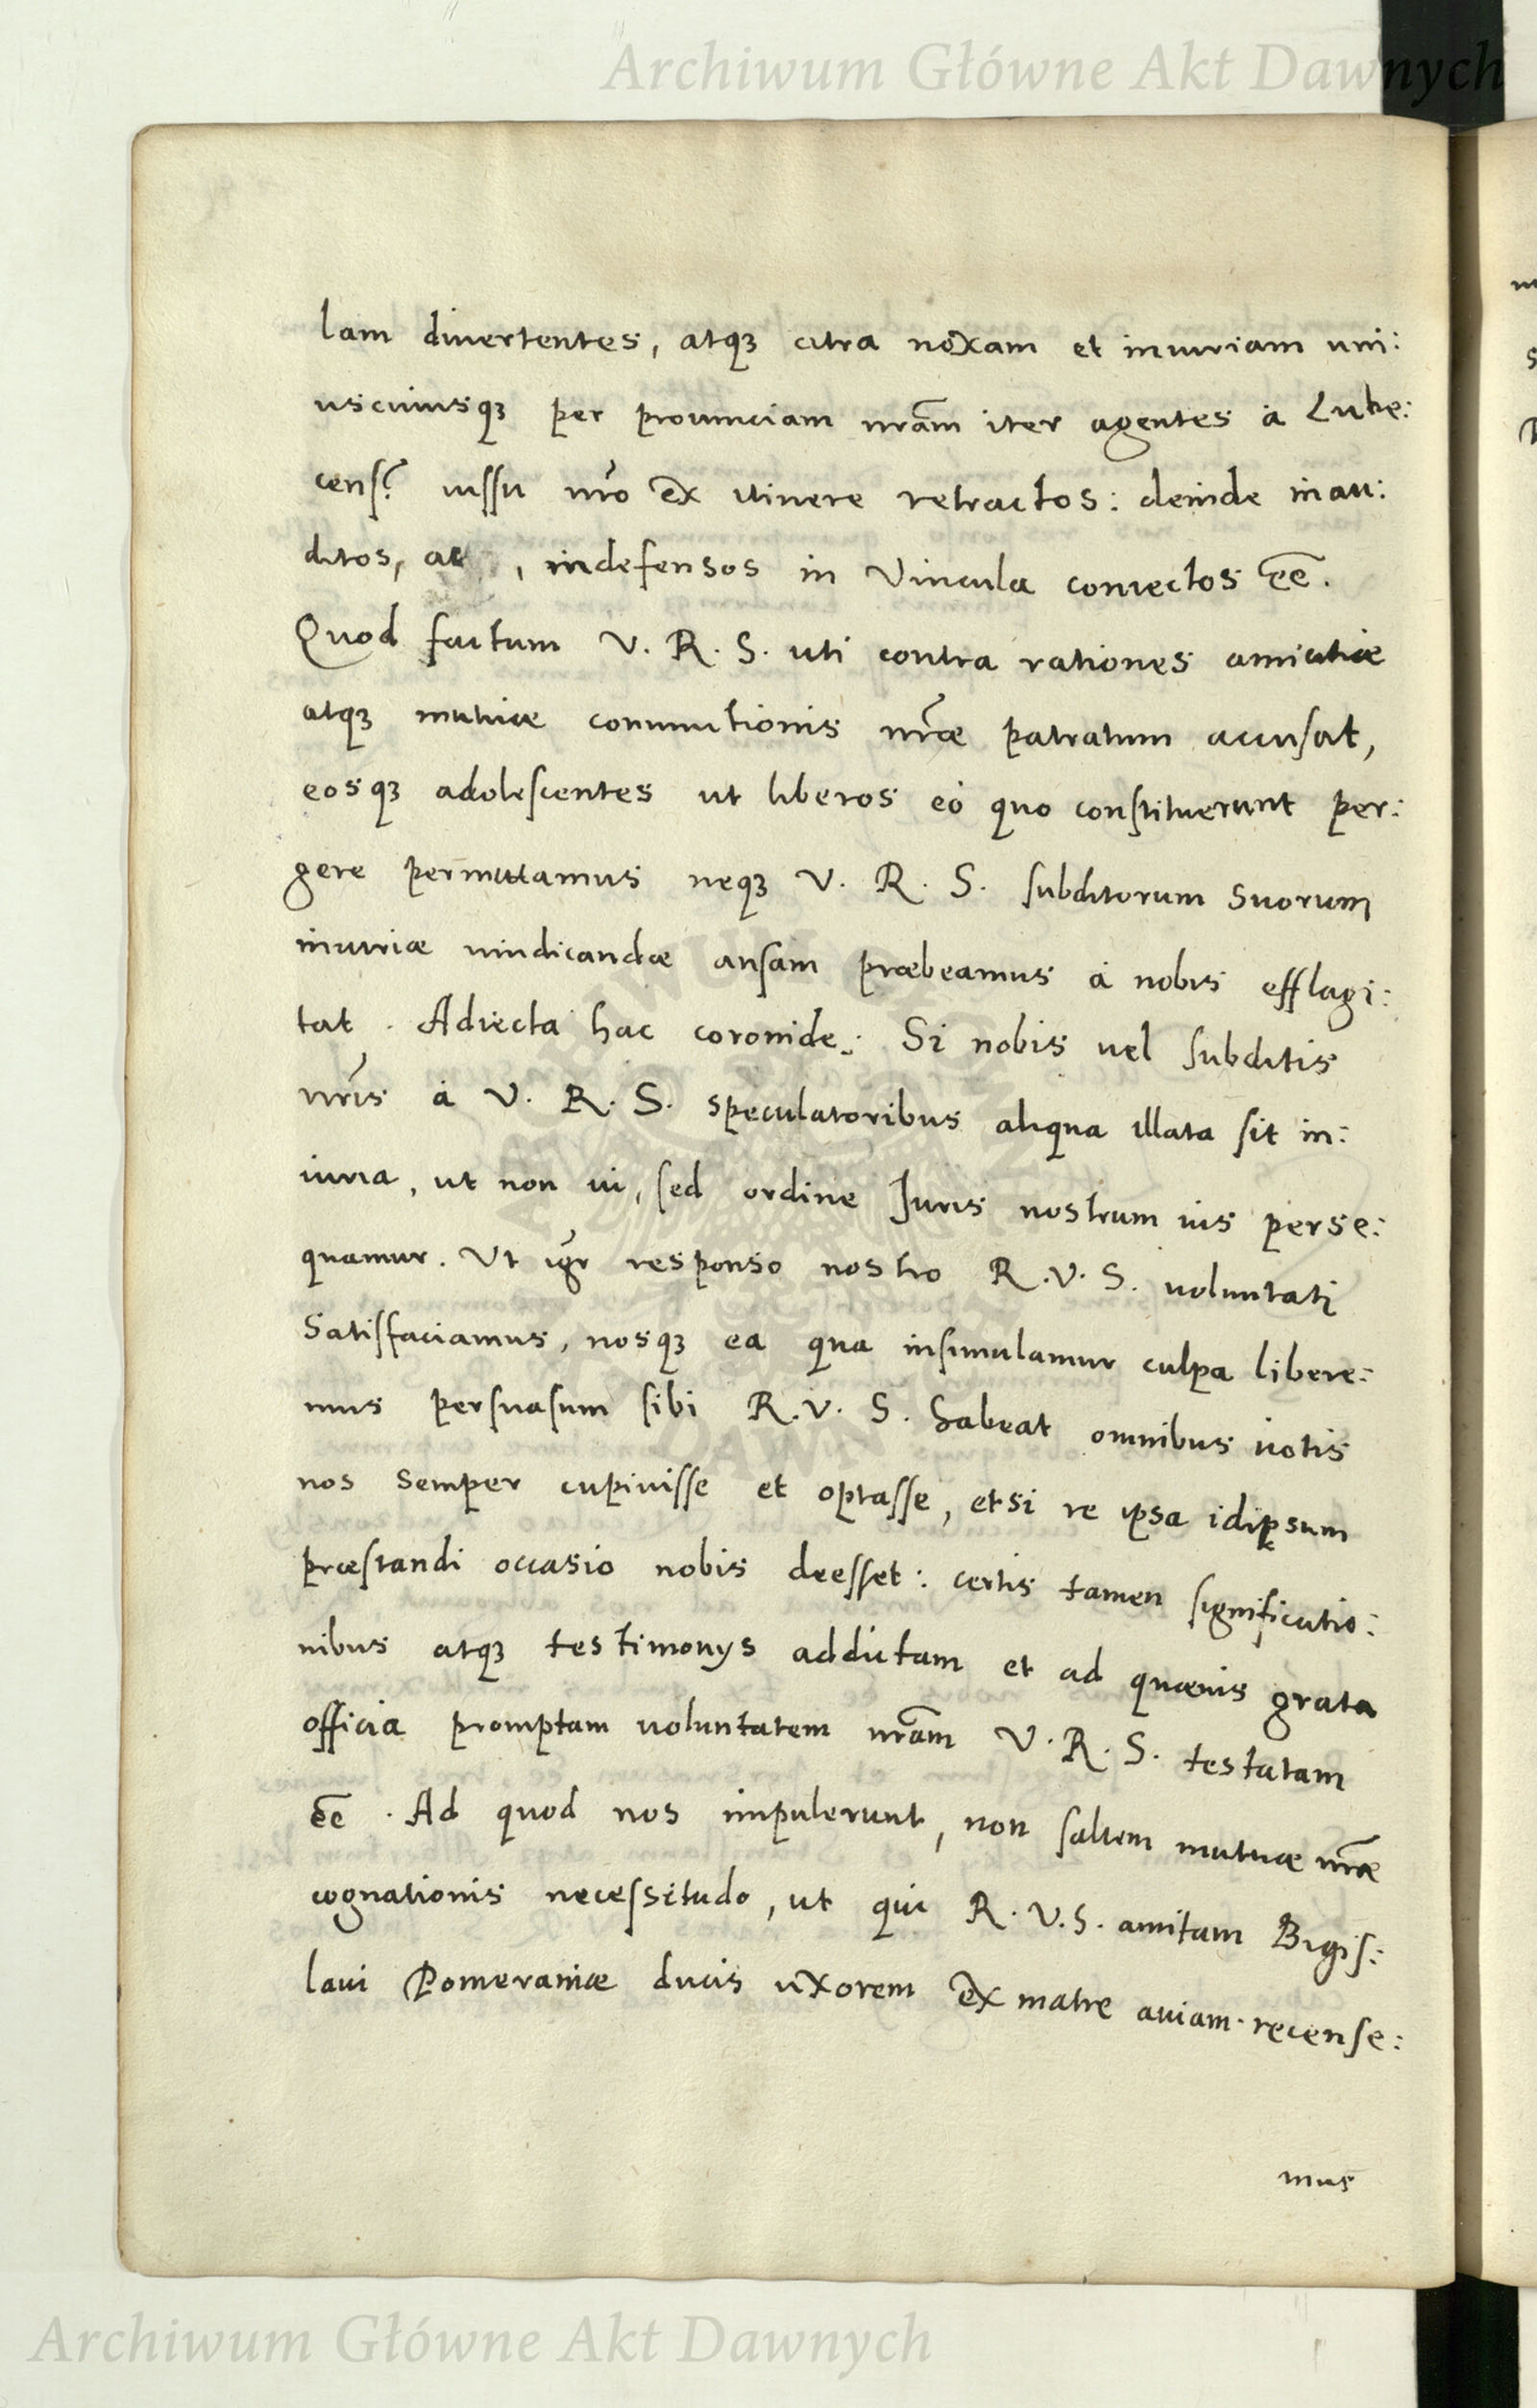 Archiwum Główne Akt Dawnych
lam divertentes, atqꝫ citra noxam et iniuriam uni:
uscuiusqꝫ per prouinciam nr̃am iter agentes à Lube:
cens̃ iussu nr̃o ex itinere retractos: deinde inau:
ditos, ac, indefensos in Vincula coniectos eẽ.
Quod factum V. R. S. uti contra rationes amicitiæ
atqꝫ mutuæ coniunctionis nr̃æ patratum accusat,
eosqꝫ adolescentes ut liberos eò quo constituerunt per:
gere permittamus neqꝫ V. R. S. subditorum suorum
iniuriæ uindicandæ ansam præbeamus à nobis efflagi:
tat. Adiecta hac coronide: Si nobis uel subditis
nr̃is à V. R. S. speculatoribus aliqua illata sit in:
iuria, ut non ui, sed ordine Juris nostrum ius perse:
quamur. Ut igr̃ responso nostro R. V. S. uoluntati
Satisfaciamus, nosqꝫ ea qua insimulamur culpa libere:
mus persuasum sibi R. V. S. habeat omnibus uotis
nos semper cupiuisse et optasse, etsi re ipsa idipsum
præstandi occasio nobis deesset: certis tamen significatio:
nibus atqꝫ testimonys addictam et ad quæuis grata
officia promptam uoluntatem nr̃am V. R. S. testatam
eẽ. Ad quod nos impulerunt, non saltem mutuæ nr̃æ
cognationis necessitudo, ut qui R. V. S. amitam Bugis:
laui Pomeraniæ ducis uxorem ex matre auiam recense:
mus
Archiwum Główne Akt Dawnych